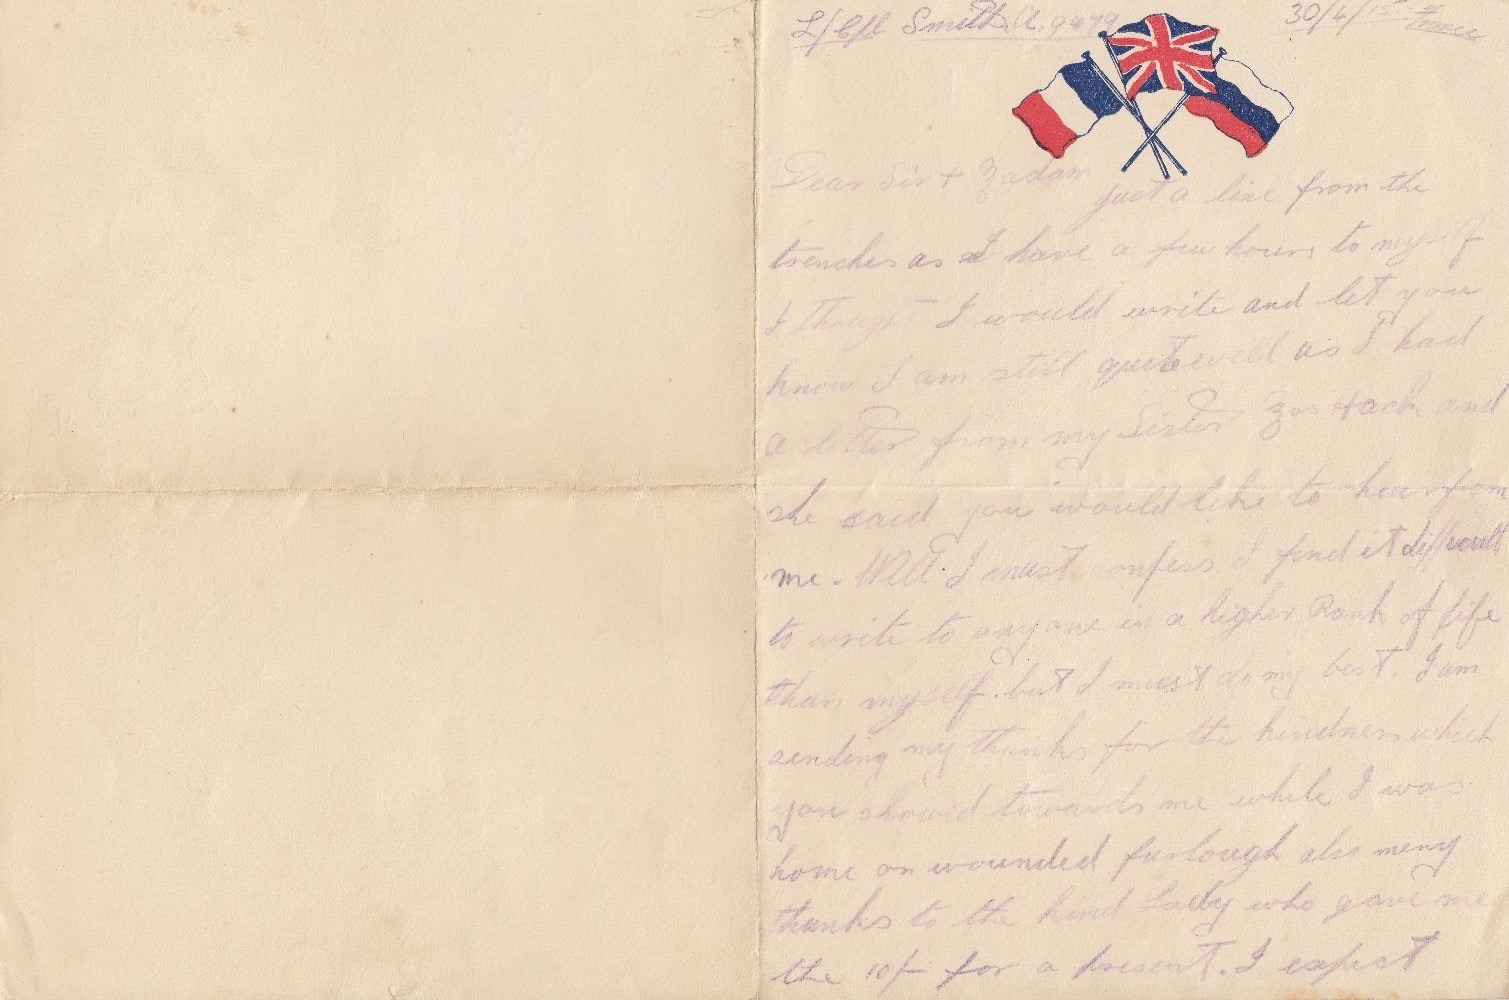 L/Cpl Smith. A. 9479
30/4/15 France
Dear Sir + Madam
just a line from the
trenches as I have a few hours to myself
I thought I would write and let you
know I am still quite well as I had
a letter from my Sister Mrs Hack and
she said you would like to hear from
me. Well I must confess I find it difficult
to write to anyone in a higher Rank of life
than myself. but I must do my best. I am
sending my thanks for the kindness which
you showed towards me while I was
home on wounded furlough also meny
thanks to the kind Lady who gave me
the 10/- for a present. I expect